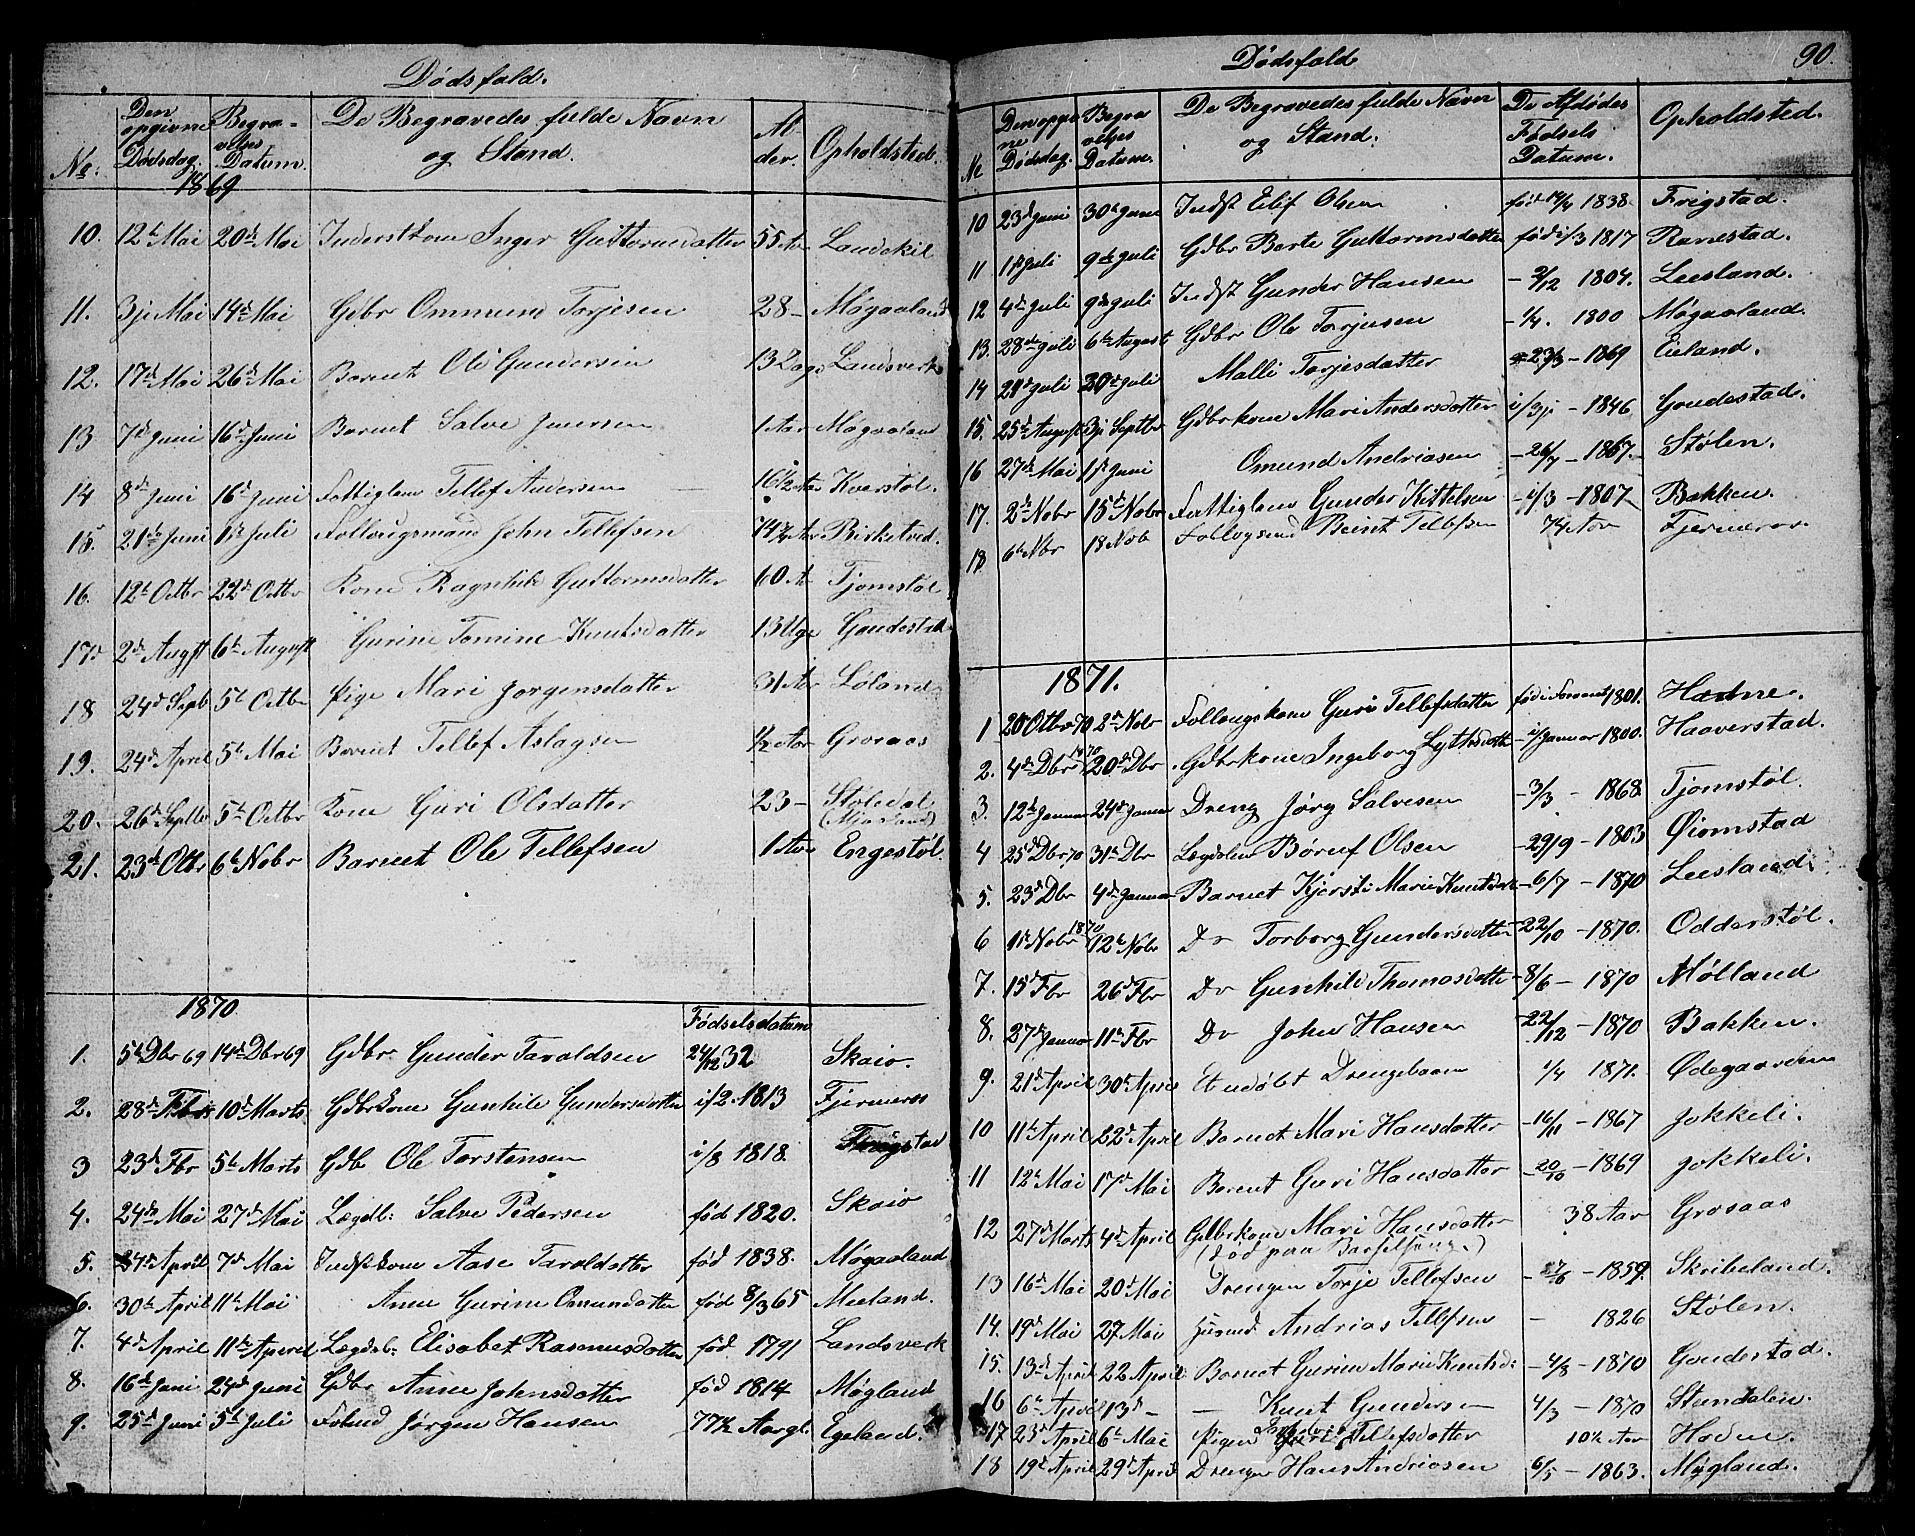 Dødsfald.
No. Den opgivne Dødsdag. Begravelses Datum. De Begravedes fulde Navn og Stand. Alder. Opholdsted.
1869
10. 12te Mai 20de Mai Inderstkone Inger Guttormsdatter 55 Aar Landskil
11. 3je Mai 14de Mai Gdbr Ommund Torjesen 28 – Møgaaland
12. 17de Mai 26de Mai Barnet Ole Gundersen 13 Dage Landsverk
13 7de Juni 16de Juni Barnet Salve Jensen 1 Aar Møgaaland
14 8de Juni 16de Juni Fattiglem Tellef Andersen 16½ Aar Kverstøl.
15. 21de Juni 1ste Juli Follaugsmand John Tellefsen 74½ Aar Birketved.
16. 12te Octbr 22de Octbr Kone Ragnhild Guttormsdatter 60 Ar Tjomstøl
17. 2de Augst 6te August Gurine Tomine Knutsdatter 13 Uge Goudestad
18 24de Septb 5te Octbr Pige Mari Jørgensdatter 31 Aar Løland
19. 24de April 5te Mai Barnet Tellef Aslagsen ½ Aar Grosaas
20. 26de Septbr 5te Octbr Kone Guri Olsdatter 23 – Stoledal
21. 23de Otbr 6te Nobr Barnet Ole Tellefsen 1 Aar Engestøl.
1870 Fødselsdatum
1. 5te Dbr 69 14de Dbr 69 Gdbr Gunder Taraldsen 24/12 32 Skaio.
2. 28de Fbr 10de Marts Gdbrkone Gunhild Gundersdatter i/2 1813 Fjermeros
3 23de Fbr 5te Marts Gdb Ole Torstensen i/8 1818. Frigstad
4. 24de Mai 27de Mai Lægdl: Salve Pedersen fød 1820. Skaio
5. 24de April 7de Mai Indstkone Aase Taraldsdatter fød 1838. Møgaaland
6. 30te April 11te Mai Anne Gurine Omundsdatter fød 8/3 65 Meeland.
7. 4de April 11te Aperil Lægdsl: Elisabet Rasmusdatter fød 1791 Landsverk
8. 16de Juni 24de Juni Gdbr Anne Johnsdatter fød 1814 Møgland
9. 25de Juni 5te Juli Jørgen Hansen 77½ Aar gl. Egeland.
Dødsfald 90.
No Den opgivne Dødsdag. Begravelses Datum. De Begravedes fulde Navn og Stand. De Afdødes Fødsels Datum. Opholdsted.
10 23de Juni 30te Juni Indst Elif Olsen fød 14/4 1838. Frigstad.
11 1ste Juli 9de Juli Gdbr Berte Guttormsdatter fød i/3 1817 Ranestad.
12 4de Juli 9de Juli Indst Gunder Hansen – 2/12 1804. Leesland.
13. 28de Juli 6te August Gdbr Ole Torjusen – ¼. 1800 Møgaaland.
14 21de Juli 30te Juli Malli Torjesdatter 23/3 – 1869 Eieland.
15. 25de August 3je Septbr Gdbrkone Mari Andersdatter i/3je – 1846 Goudestad.
16 27de Mai 1ste Juni Omund Andriasen – 26/7 – 1867. Stølen.
17. 2de Nobr 15de Nobr Fattiglem Gunder Kittelsen – i/3 – 1807 Bakken.
18 6te Nbr 18 Nob Bernt Tellefsen 74 Aar
1871.
1 20 Otbr 70 2de Nobr Follaugskone Guri Tellefsdatter fød i Sommeret 1801. Hodne.
2. 4de Dbr 1870 20de Dbr Gdbrkone Ingeborg – i Januar 1800. Haaverstad.
3. 12te Januar 24de Januar Dreng Jørg Salvesen – 3/3 – 1868. Tjomstøl.
4 25de Dbr 70 31te Dbr Lægdslem Børuf Olsen – 29/9 – 1803 Øiomstad
5. 23de Dbr 4de Januar Barnet Kjersti Marie Knutsdat – 6/7 – 1870 Leesland
6 1ste Nobr 1870 12te Nobr Do Torborg Gundersdatter – 22/10 – 1870. Odderstøl.
7. 15de Fbr 26de Fbr Do Gunhild Thomasdatter – 8/6 – 1870 Mølland
8. 27de Januar 11te Fbr Do John Hansen – 22/12 – 1870 Bakken.
9. 21de April 30te April Et udøbt Drengebarn ¼ 1871. Ødegaarden
10 11te April 22de April Barnet Mari Hansdatter – 16/11 – 1867 Jokkeli.
11 12te Mai 17de Mai Barnet Guri Hansdatter – 20/10 – 1869 Jokkeli.
12 27de Marts 4de April Gdbrkone Mari Hansdatter 38 Aar Grosaas
(Død paa Barselseng.)
13 16de Mai 20de Mai Drengen Torje Tellefsen 1859. Skribeland.
14. 19de Mai 27 Mai Husmd Andrias Tellefsen – 1826 Stølen.
15. 13de April 22 April Barnet Gurine Marie Knutsd: – 4/8 – 1870 Goudestad.
16 6te April 13de – – Knut Gundersen 4/3 – 1870 Stendalen.
17. 23de April 6te Mai Pigen Guri Tellefsdatter 10½ Aar Hodne.
18 19de April 29de April Drengen Hans Andriasen 6/5 – 1863. Møgland.